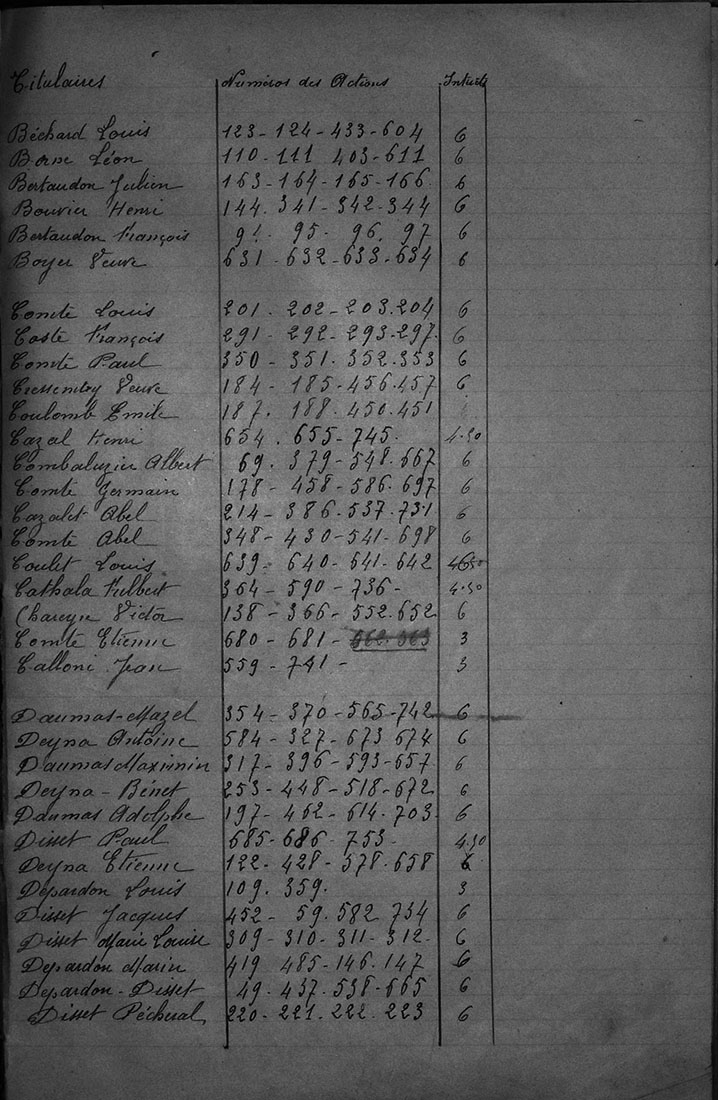 Titulaires Numéros des Actions Intérêts
Béchard Louis 123 - 124 - 433 - 604 6
Borne Léon 110 - 111 403 - 611 6
Bertaudon Julien 163 - 164 - 165 - 166 6
Bouvier Henri 144. 341 - 342 - 344 6
Bertaudon François 91. 95 - 96. 97 6
Boyer Veuve 631 - 632 - 633 - 634 6
Comte Louis 201. 202 - 203. 204 6
Coste François 291 - 292 - 293 - 297. 6
Comte Paul 350 - 351. 352. 353 6
Veuve 184 - 185 - 456. 457 6
Coulomb Emile 187. 188. 450. 451
Cazal Henri 654. 655 - 745. 4.50
Combaluzier Albert 69. 379 - 548. 667 6
Comte Germain 178 - 458 - 586. 697 6
Cazalet Abel 214 - 386. 537. 731 6
Comte Abel 348 - 430 - 541 - 698 6
Coulet Louis 639 - 640 - 641 - 642
Cathala Fulbert 364 - 590 - 736 - 4.50
Chareyre Victor 138 - 366 - 552. 652 6
Comte Etienne 680 - 681 - 3
Calloni Jean 559 - 741 - 3
Daumas-Mazel 354 - 370 - 565 - 742 6
Deyna Antoine 584 - 327 - 673 674 6
Daumas Maximin 317 - 396 - 593 - 657 6
Deyna - Bénet 253 - 448 - 518 - 672 6
Daumas Adolphe 197 - 462 - 614 - 703 6
Disset Paul 685 - 686. 753 - 4.50
Deyna Etienne 122 - 428 - 578. 658 6
Depardon Louis 109. 359. 3
Disset Jacques 452 - 59. 582 734 6
Disset Marie Louise 309 - 310 - 311 - 312 - 6
Depardon Marin 419 485 - 146. 147 6
Depardon - Disset 49. 437. 538 - 665 6
Disset Pécheral 220 - 221 - 222. 223 6